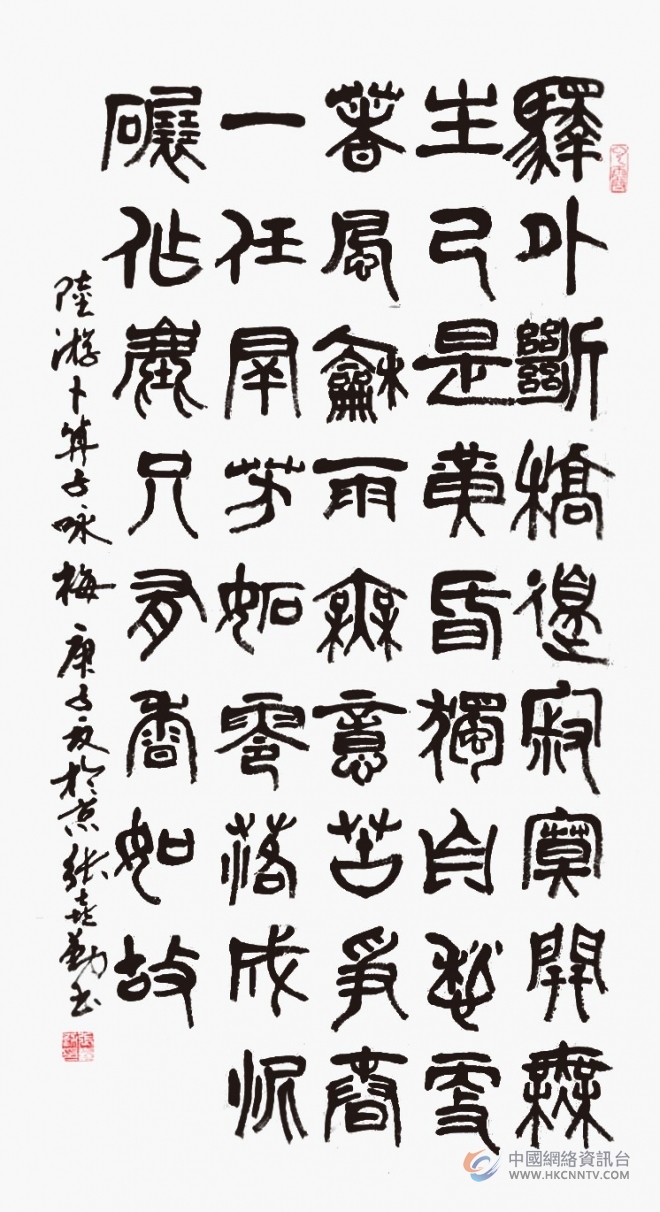 驛外斷橋邊寂寞開無
主已是黃昏獨自愁更
著風龢雨無意苦爭春
一任群芳妬零落成泥
碾作塵只有香如故
陸游卜算子咏梅 庚子夏於京張喜勤書
中國網絡資訊台
WWW.HKCNNTV.COM